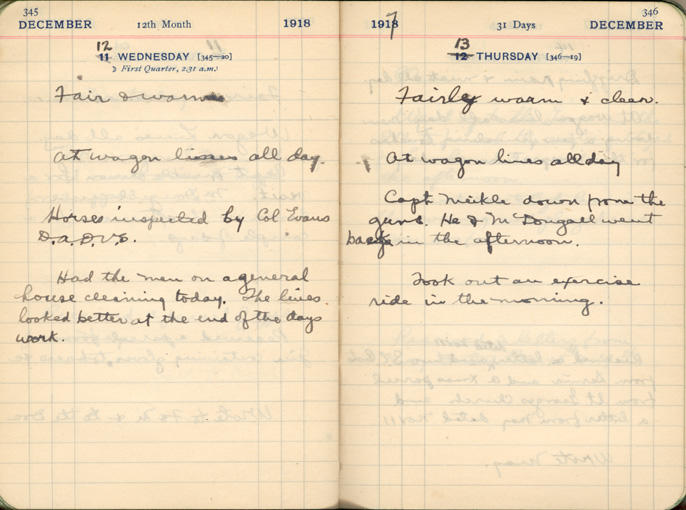 345
DECEMBER 12th Month 1918
12
11 WEDNESDAY [345-20]
☽ First Quarter, 2.31 a.m.
Fair & warm
At wagon lines all day.
Horses inspected by Col Evans
D.a.D.V.S.
Had the men on a general
house cleaning today. The lines
looked better at the end of the days
work.
346
1917 31 Days DECEMBER
13
12 THURSDAY [346-19]
Fairly warm & clear.
At wagon lines all day
Capt Meikle down from the
guns. He & McDougall went
back in the afternoon.
Took out an exercise
ride in the morning.